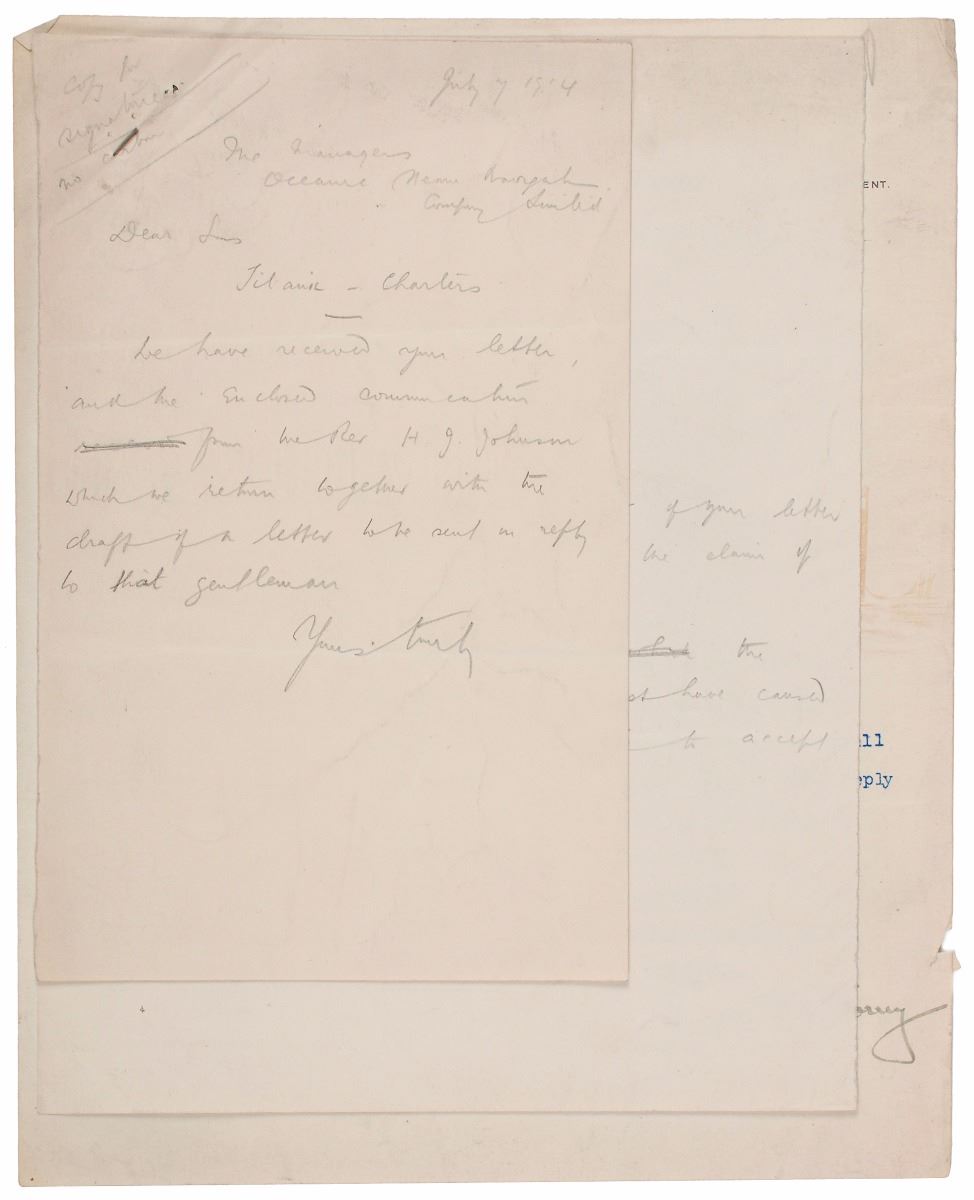 Copy for
signature
no carbon
July 7 1914
The Managers
Oceanic Steam Navigation
Company Limited
Dear Sirs
Titanic - Charters
We have received your letter,
and the enclosed communication
from the Rev H. J. Johnson
which we return together with the
draft of a letter to be sent in reply
to that gentleman
Yours truly
ENT.
of your letter
the claim of
the
have caused
to accept
ll
eply